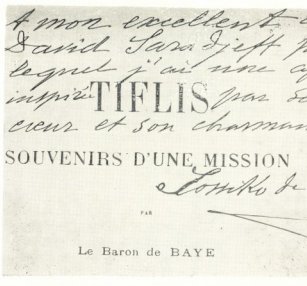 A mon excellent
David Saradjeff
lequel j'ai une
inspiré TIFLIS par son
cœur et son charmant
SOUVENIRS D'UNE MISSION
de
PAR
Le Baron de BAYE